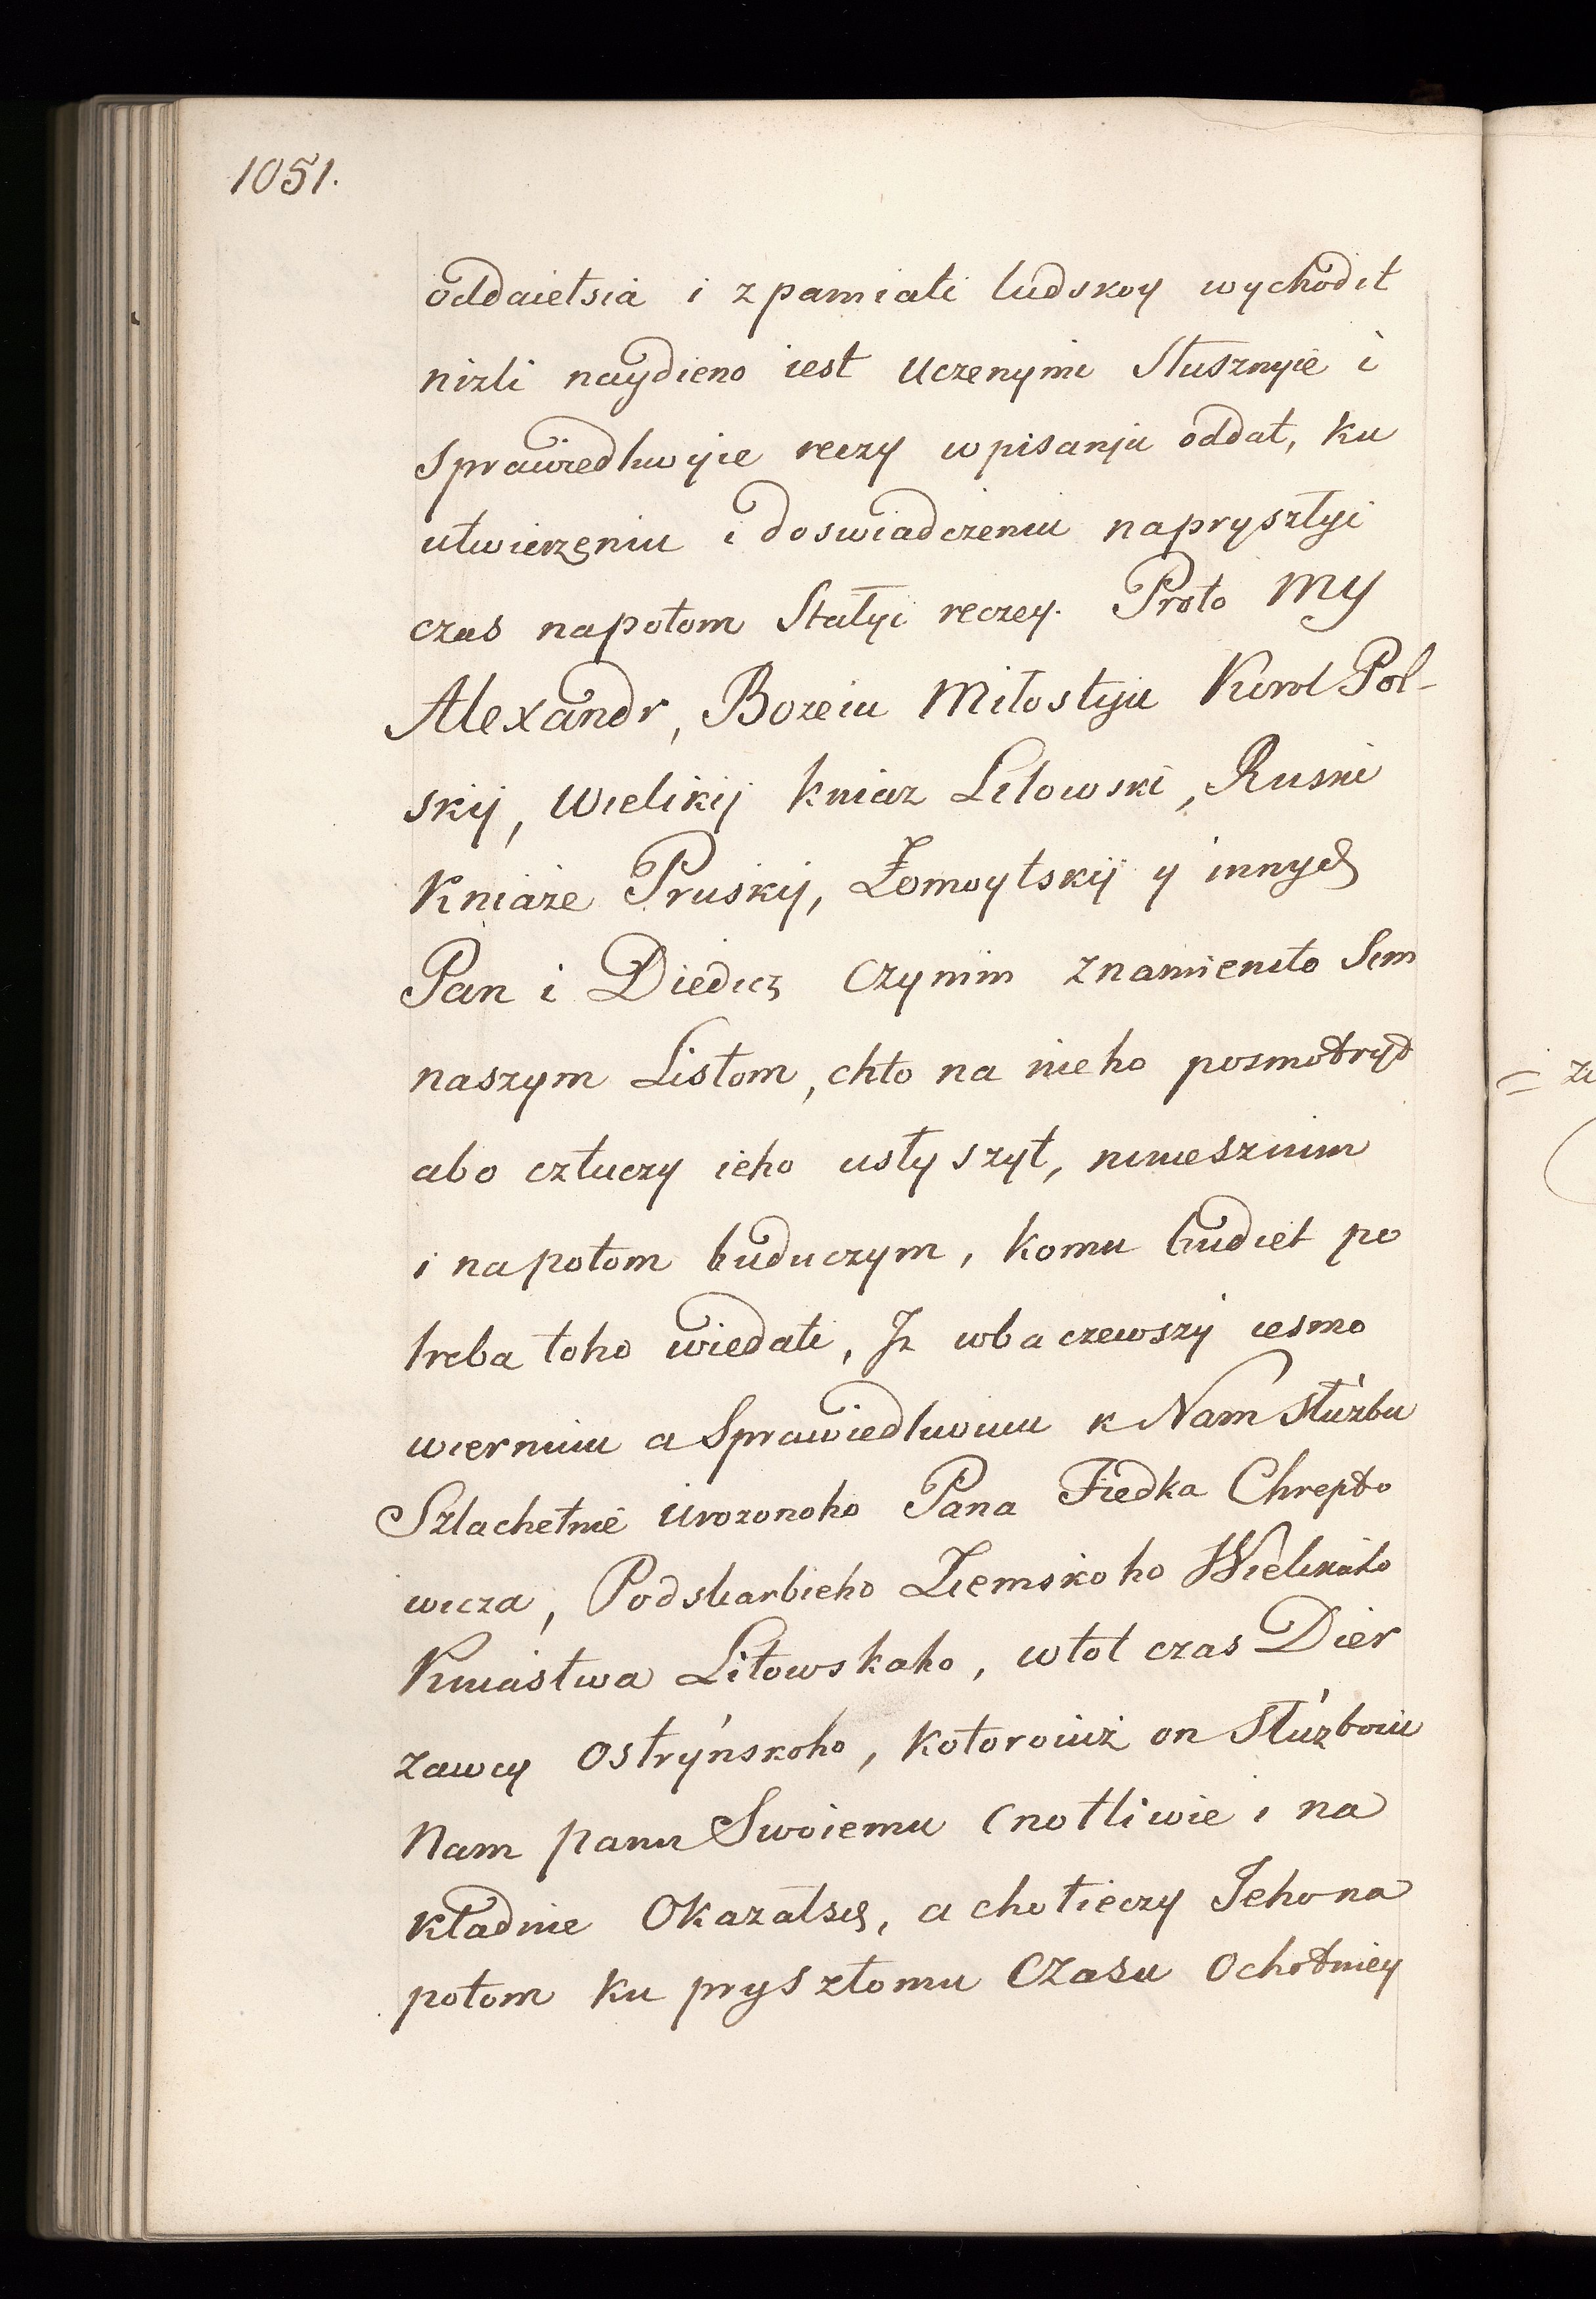 1051.
oddaietsia i z pamiati ludskoy wychodit
nizli naydieno iest Uczenymi Słusznyie i
sprawiedliwyie reczy w pisanju oddat, ku
utwierzeniu i doswiadczeniu napryszłyi
czas napotom Stałyi reczey. Proto My
Alexandr, Bozeiu Miłostyju Korol Pol-
skij, Wielikij kniaz Litowski, Ruski
Kniaze Pruskij, Żomoytskij y innych
Pan i Diedicz Czynim znamienito Sim
naszym Listom, chto na nieho posmotryt
abo cztuczy ieho usłyszyt, ninesznim
i napotom buduczym, komu budiet po
treba toho wiedati, Iz wbaczewszy iesmo
wierniuiu a Sprawiedliwuiu k Nam służbu
Szlachetnie Urozonoho Pana Fiedka Chrepto
wicza, Podskarbieho Ziemskoho Wielikoho
Kniastwa Litowskaho, wtot czas Dier
zawcy Ostryńskoho, kotoroiuż on Służboiu
Nam panu Swoiemu Cnotliwie i na
kładnie Okazałsia, a chotieczy Jeho na
potom ku pryszłomu Czasu Ochotniey
= Zi